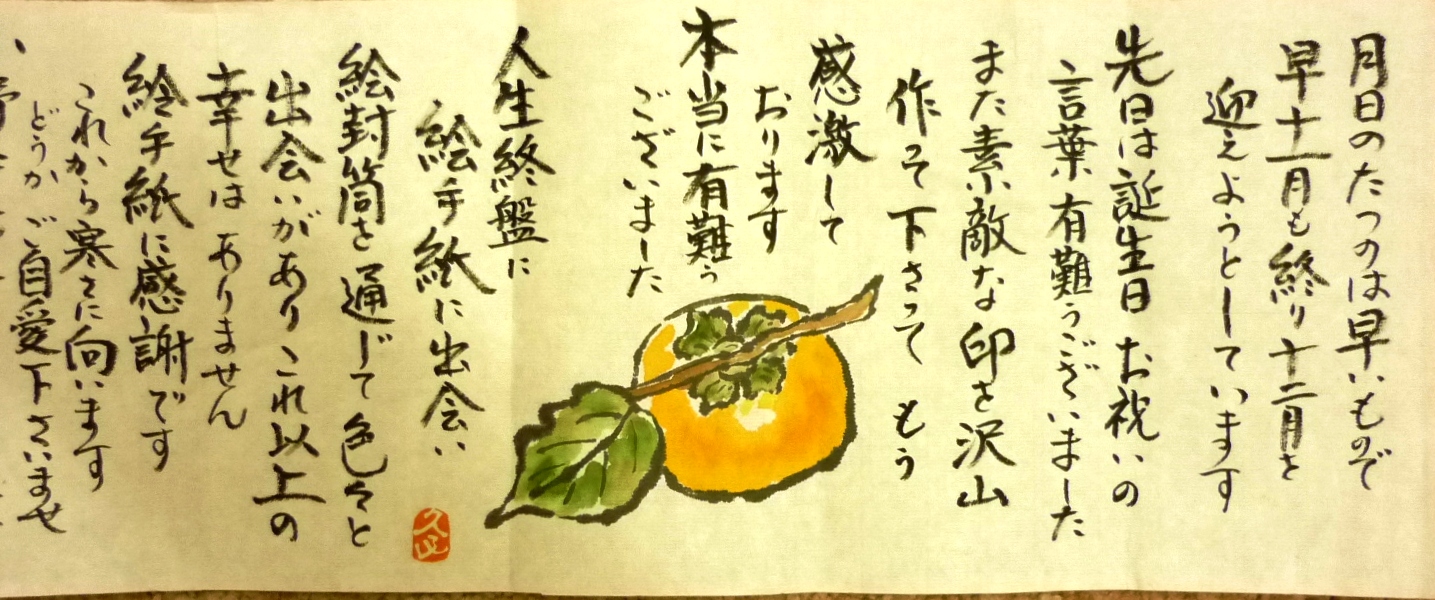 月日のたつのは早いもので
早十一月も終り十二月を
迎えようとしています
先日は誕生日お祝いの
言葉有難うございました
また素敵な印を沢山
作って下さって もう
感激して
おります
本当に有難う
ございました
人生終盤に
絵手紙に出会い
絵封筒を通じて色々と
出会いがありこれ以上の
幸せはありません
絵手紙に感謝です
これから寒さに向います
どうかご自愛下さいませ